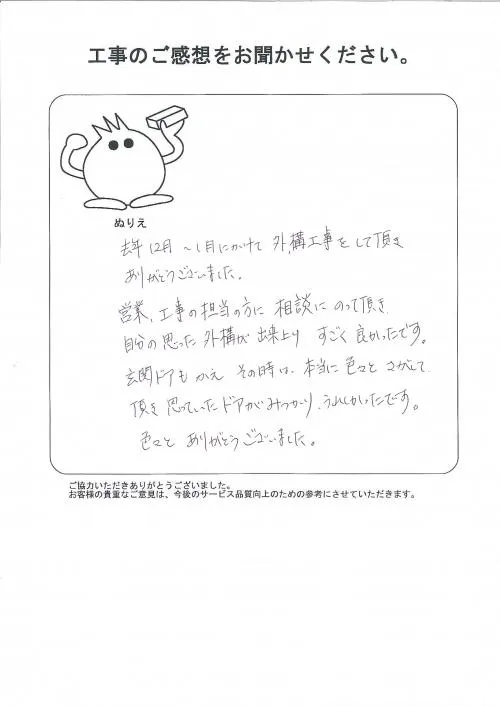 工事のご感想をお聞かせください。
ぬりえ
去年12月～1月にかけて 外構工事をして頂き
ありがとうございました。
営業、工事の担当の方に 相談にのって頂き
自分の思った外構が出来上り すごく良かったです。
玄関ドアもかえ その時は、本当に色々とさがして
頂き 思っていたドアがみつかり、うれしかったです。
色々と ありがとうございました。
ご協力いただきありがとうございました。
お客様の貴重なご意見は、今後のサービス品質向上のための参考にさせていただきます。